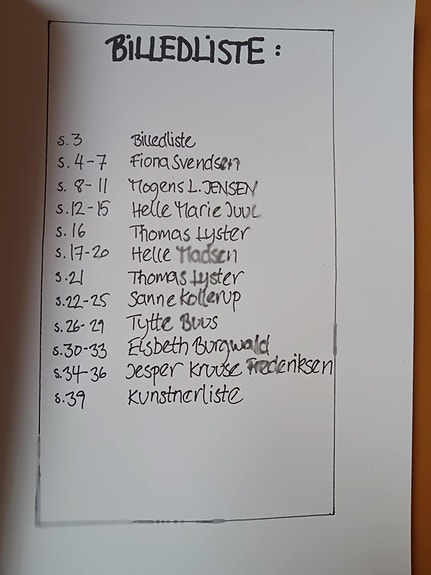 BILLEDLISTE :
s.3 Billedliste
s. 4-7 Fiona Svendsen
s. 8-11 Mogens L. JENSEN
s.12-15 Helle Marie Juul
s.16 Thomas Lyster
s.17-20 Helle Madsen
s.21 Thomas Lyster
s.22-25 Sanne Kollerup
s.26-29 Tytte Buus
s.30-33 Elsbeth Burgwald
s.34-36 Jesper Kruuse Frederiksen
s.39 Kunstnerliste